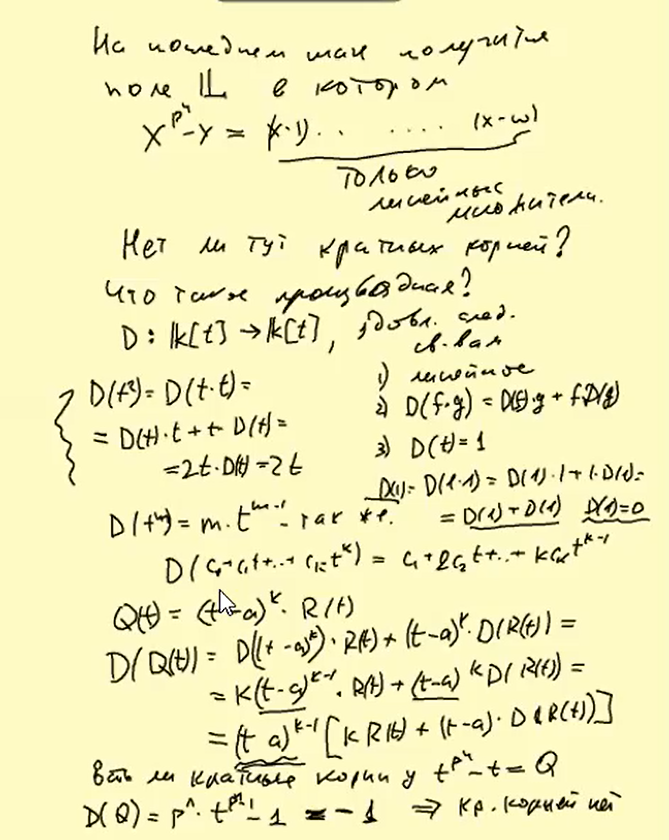 На последнем шаге получится
поле 𝕃 в котором
X^{p^n} - X = (x-1) .. .... (x-ω)
только
линейные
множители.
Нет ли тут кратных корней?
Что такое производная?
D : 𝕜[t] → 𝕜[t], удовл. след.
св-вам
1) линейное
D(t²) = D(t·t) =
2) D(f·g) = D(f)·g + f·D(g)
= D(t)·t + t D(t) =
3) D(t) = 1
= 2t·D(t) = 2t
D(1) = D(1·1) = D(1)·1 + 1·D(1) =
D(t^m) = m·t^{m-1} - так же.
= D(1) + D(1) D(1) = 0
D(c₀+c₁t+..+c_k t^k) = c₁+2c₂t+..+ kc_k t^{k-1}
Q(t) = (t-a)^k · R(t)
D(Q(t)) = D((t-a)^k)·R(t) + (t-a)^k·D(R(t)) =
= k(t-a)^{k-1}·R(t) + (t-a)^k D(R(t)) =
= (t a)^{k-1} [k R(t) + (t-a)·D(R(t))]
Есть ли кратные корни у t^{p^n} - t = Q
D(Q) = p^n · t^{p^n-1} - 1 = -1 ⇒ кр. корней нет